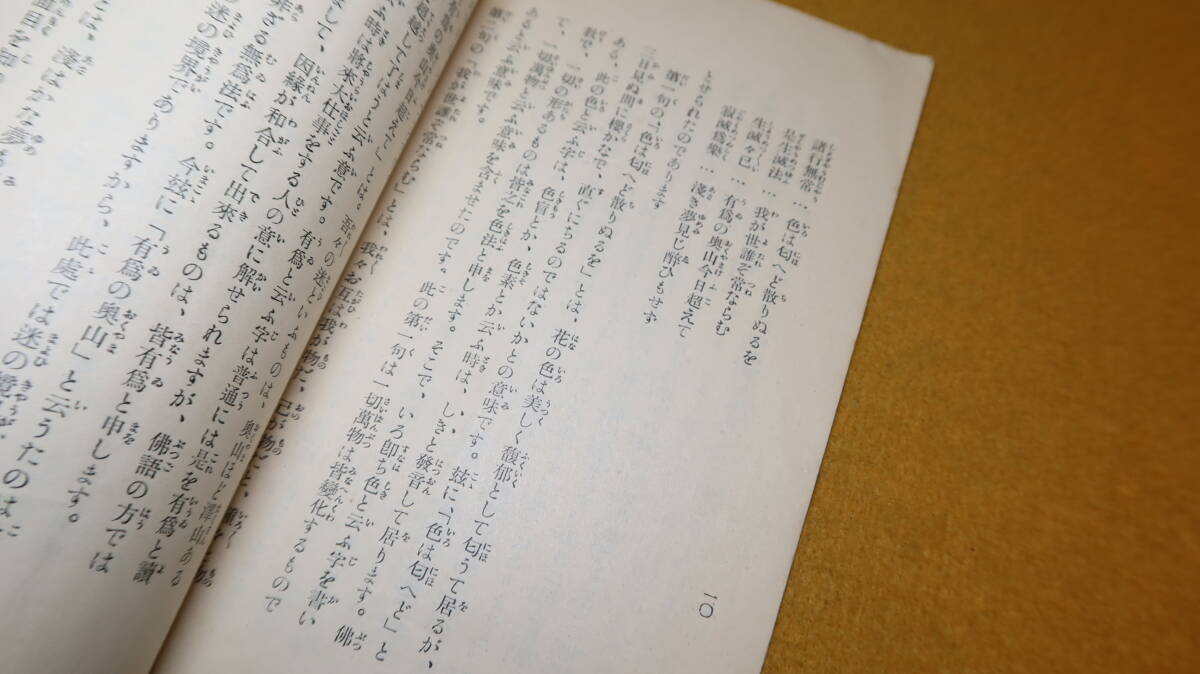 諸行無常… 色は匂へど散りぬるを
是生滅法… 我が世誰ぞ常ならむ
生滅々已… 有爲の奥山今日超えて
寂滅爲樂… 淺き夢見じ醉ひもせず
とせられたのであります
第一句の「色は匂へど散りぬるを」とは、花の色は美しく馥郁として匂うて居るが、
三日見ぬ間に櫻かなで、直ぐにちるのではないかとの意味です。玆に、「色は匂へど」と
ある、此の色と云ふ字は、色盲とか、色素とか云ふ時は、しきと發音して居ります。佛
敎で、一切の形あるものは皆之を色法と申します。そこで、いろ即ち色と云ふ字を書い
て、一切萬物と云ふ意味を含ませたのです。此の第一句は一切萬物は皆變化するもので
あると云ふ意味です。
第二句の「我が世誰ぞ常ならむ」とは、我々お互は我が物だ、己が物だと、
超えて」とは。吾々の迷といふものは、奥山ほど澤山ある
越して了はうと云ふ意です。有爲と云ふ字は普通には是を有爲と讀
して、將來大仕事をする人の意に解せられますが、佛語の方では
因緣が和合して出來るものは、皆有爲と申します。
非ざる無爲法です。今玆に「有爲の奥山」と云うたのは
迷の境界でありますから、此處では迷の境
とは、淺はかな夢も
一〇